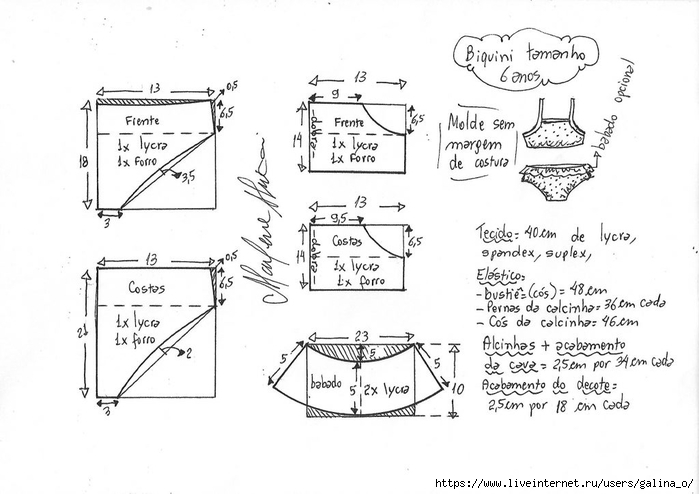 Biquini tamanho
6 anos
13
0,5
6,5
18
Frente
1x lycra
1x forro
3,5
3
13
9
6,5
14
dobra
Frente
1x lycra
1x forro
Molde sem
margem
de costura
babado opcional
13
9,5
6,5
14
dobra
Costas
1x lycra
1x forro
13
0,5
6,5
21
Costas
1x lycra
1x forro
2
3
23
5
5
5
5
10
babado
2x lycra
Tecido = 40 cm de lycra,
spandex, suplex,
Elástico:
- bustiê = (cós) = 48 cm
- Pernas da calcinha = 36 cm cada
- Cós da calcinha = 46 cm
Alcinhas + acabamento
da cava = 2,5 cm por 34 cm cada
Acabamento do decote =
2,5 cm por 18 cm cada
https://www.liveinternet.ru/users/galina_o/